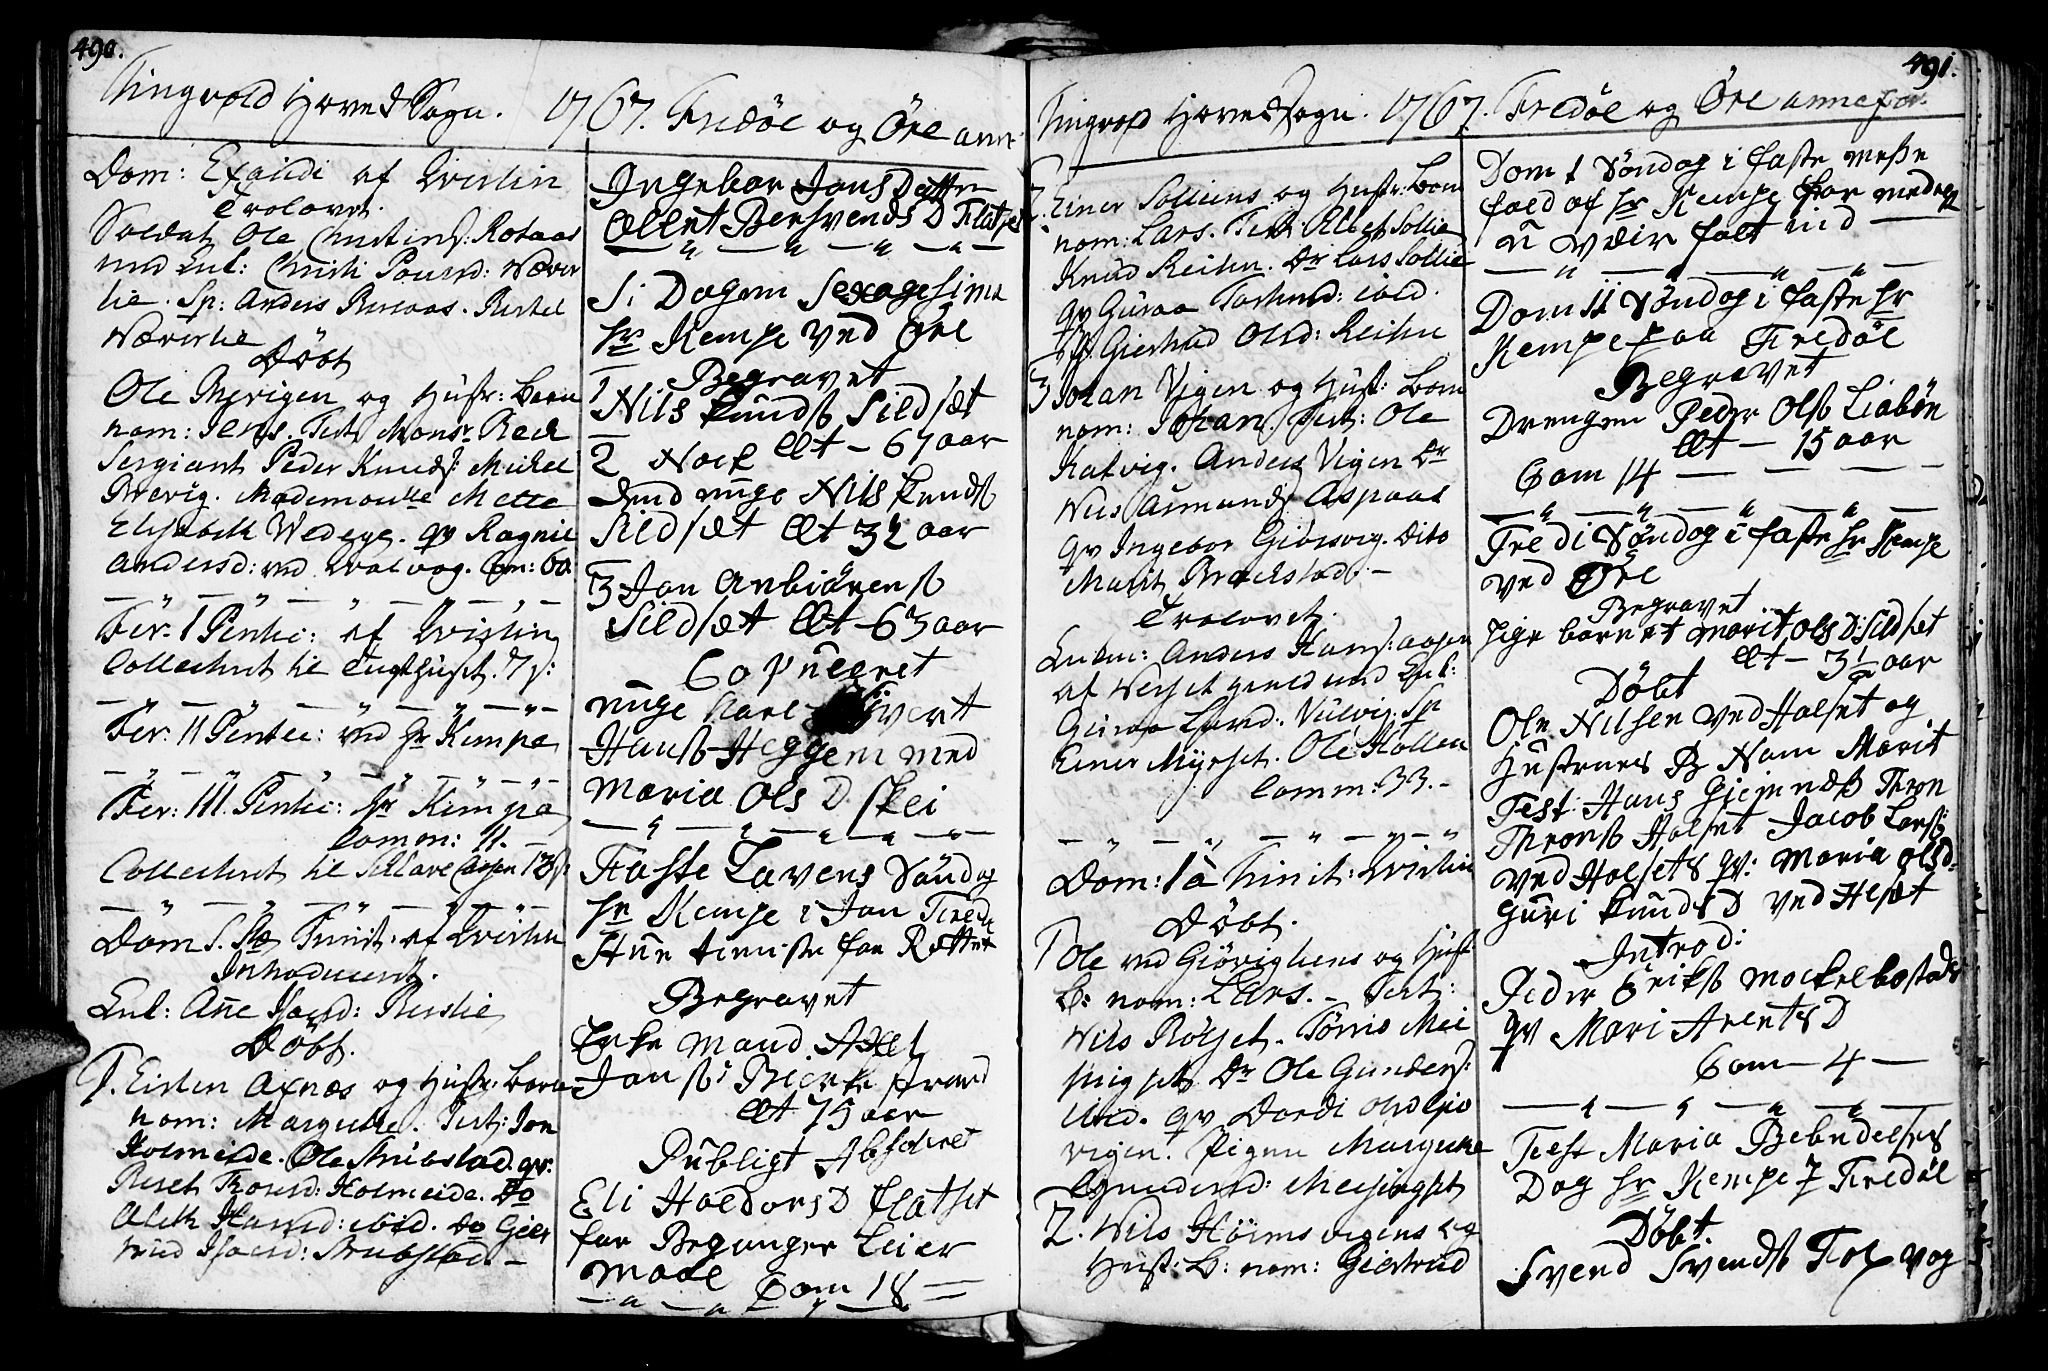 490.
Tingvold Hoved Sogn. 1767. Tredöl og Öre ann
Dom: Exaudi af Qvistin
Trolovet.
Soldat Ole Christens: Rotaas
med Enl: Christi Pouersd: Nærer
lie. Sp: Anders Rotaas. Kestel
Nærislie
Döbt
Ole Brevigen og Hustr: Barn
nom: Jens. Test: Monsr Reck
Sergiant Peder Knuds: Mickel
Brevig. Mademoiselle Mette
Elisabeth Wedege. qv Ragnil
Andersd: ved Com: 60
Fer. 1 Pentec: af Qvistin
Collecteret til Tugthuset. 7 s:
Fer. II Pentec: ved hr Kempe
Fer: III. Pentec: hr Kempe
Comm: 11.
Collecteret til Sclave Cassen 13 s:
Dom S. Stæ Trinit: af Qvistin
Introduceret.
Enl: Anne Iversd: Reslie
Döbt.
1. Eisten Axnæs og Hustr: Barn
nom: Margrethe. Test: Jon
Holmeide. Ole Strubstad. qv:
Beret Thoresd: Holmeide. Do
Aleth Hansd: ibid. Do Gier
trud Iversd: Strubstad. –
Ingebor Jons Datter
Ollet Bersvends D Flatset
S: Dagen Sexagesima
hr Kempe ved Öre
Begravet
1 Nils Knudss Sildset
Ælt – 67 aar
2 Nock
Dend unge Nils Knuds
Sildset Ælt 32 aar
3 Jon Anbiörenss
Sildset Ælt – 63 aar
Copuleret
unge Karl Sivert
Hanss Heggem med
Maria Ols D Skei
Faste Lavens Söndag
hr Kempe i Dan Tredöl
Begravet
Enke Mand Axel
Jonss: Bierkestrand
Ælt 75 aar
Publigt Absolveret
Eli Haldors D Flatset
for Begangne Leier
Maal Com 18
491.
Tingvold Hoved Sogn. 1767. Tredöl og Öre annexer.
2. Einer Solliens og Hustr: Barn
nom: Lars. Test: Ellef Sollie
Knud Reiten. Dr Lars Sollie
qv Guroa Torkind: ibid.
Dr Giertrud Olsd: Reiten
3 Johan Vigen og Hust: Barn
nom: Johan. Test: Ole
Kalvig. Anders Vigen Dr
Nils Asmunds Aspaas
qv Ingebor Giörsvig. Dito
Marit Brackstad. –
Trolovet.
Enkem: Anders Hans: Aasen
af Nesset gield med Enl:
Guroa Larsd: Vulvig. Sp
Einer Myrset. Ole Hollen
Comm: 33. –
Dom: 1 a Trinit: Qvistin
Döbt.
1 Ole ved Giörvigliens og Hust
B: nom: Lars. – Test:
Nils Rölset. Tönnis Mei
singset. Dr Ole Gunders:
ibid. qv Dordi Olsd Giö
vigen. Pigen Margrethe
Gundersd: Meisingset
2. Nils Höimsvigens og
Hust: B: nom: Giertrud
Dom 1 Söndag i faste messe
fald af hr Kempe for
u Veir falt ind
Dom II Söndag i faste hr
Kempe paa Tredöl
Begravet
Drengen Peder Olss Liabön
Ælt – 15 aar
Com 14
Tredi Söndag i faste hr Kempe
ved Öre
Begravet
Pige barnet Marit Ols D: Sildset
Ælt – 3 1/2 aar
Döbt
Ole Nilsen ved Holset og
Hustrues B Nam Marit
Test: Hans Gieimnæs Thron
Thronss Holset Jacob Larss
ved Holsets qv: Maria Olsd.
Guri Knuds D ved Helset
Introd:
Peder Erikss Mockelbostads
qv Mari Arents D
Com – 4 –
Fest Maria Bebudelses
Dag hr Kempe Tredöl
Döbt.
Svend Svends Tolvog